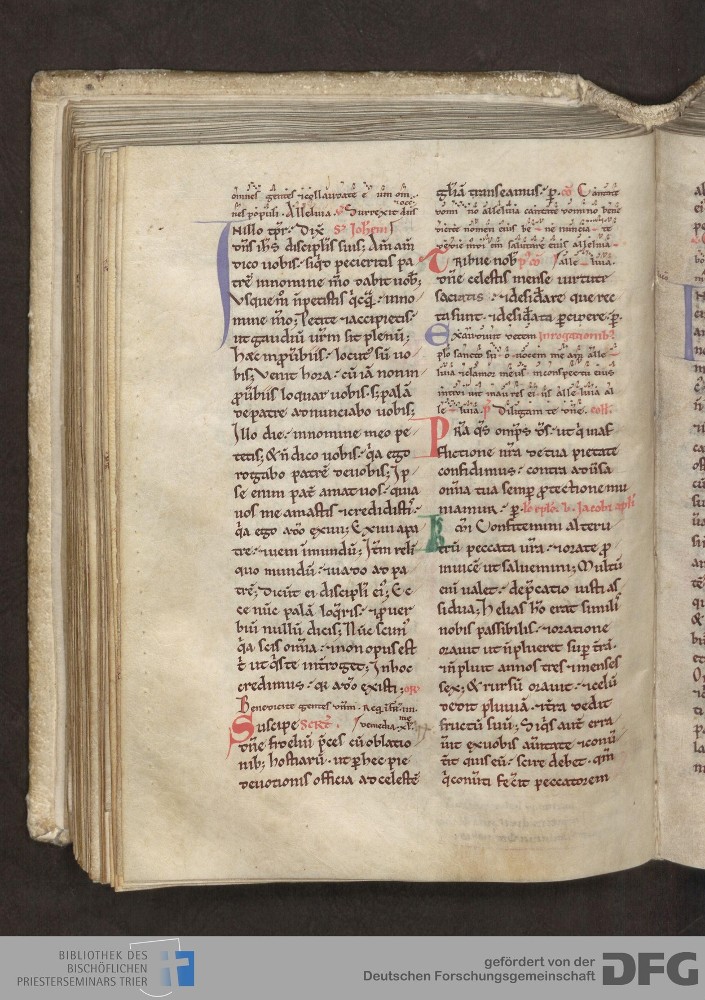 omnes gentes & collaudate eum om
nes populi. Alleluia. Surrexit dns
N illo tpr. Dix S. Johem
dns ihs disciplis suis; Am am
dico uobis. siqd pecieritis pa
tre innomine mo dabit uob;
Vsque m n petistis qcq. inno
mine mo; Petite & accipietis.
ut gaudiu urm sit plenu;
hec in puibiis locut' su uo
bis; Venit hora. cu ia non in
puibiis loquar uobis. s; pala
de patre adnunciabo uobis;
Illo die. innomine meo pe
tetis; & n dico uobis. qa ego
rogabo patre deuobis; Ip
se enim pat amat uos. quia
uos me amastis & credidisti
qa ego a do exiui; Exiui a pa
tre. & ueni in mundu; Itm reli
quo mundu. & uado ad pa
tre; Dicut ei discipli ei'; Ec
ce nuc pala loqris. & puer
biu nullu dicis; Nuc scim'
qa scis omia. & non opus est
t ut qs te introget; In hoc
credimus. qa a do existi;
Benedicite gentes dnm.
Suscipe Secret.
dne fideliu pces cu oblatio
nib; hostiaru. ut p hec pie
deuotionis officia ad celeste
glam transeamus. p. co Cantate
domino alleluia cantate domino bene
dicite nomen eius bene nunciate
de die in diem salutare eius alleluia
Tribue nob p co alleluia.
dne celestis mense uirtute
saciatis. & desidare que rec
ta sunt. & desidata pcipere. p.
Exaudiuit de templo inrogationib;
sancto suo uocem mea alle
luia & clamor meus in conspectu eius
introiuit in aures eius alleluia al
leluia. p Diligam te dne. coll.
Pra qs omps ds. ut q in af
flictione nra de tua pietate
confidimus. contra aduersa
omia tua semp ptectione mu
niamur. p. Jacobi apli
Kmi Confitemini alteru
tru peccata ura. & orate p
inuice ut saluemini; Multu
eni ualet. depcatio iusti as
sidua; Helias ho erat simili
nobis passibilis. & oratione
orauit ut n plueret sup tra.
& n pluit annos tres & menses
sex; & rursu orauit. & celu
dedit pluuia. & tra dedit
fructu suu; Siqs aut erra
uit ex uobis a uitate & conu
tit quis eu. scire debet. qm
q conuti fecit peccatorem
BIBLIOTHEK DES
BISCHÖFLICHEN
PRIESTERSEMINARS TRIER
gefördert von der
Deutschen Forschungsgemeinschaft
DFG